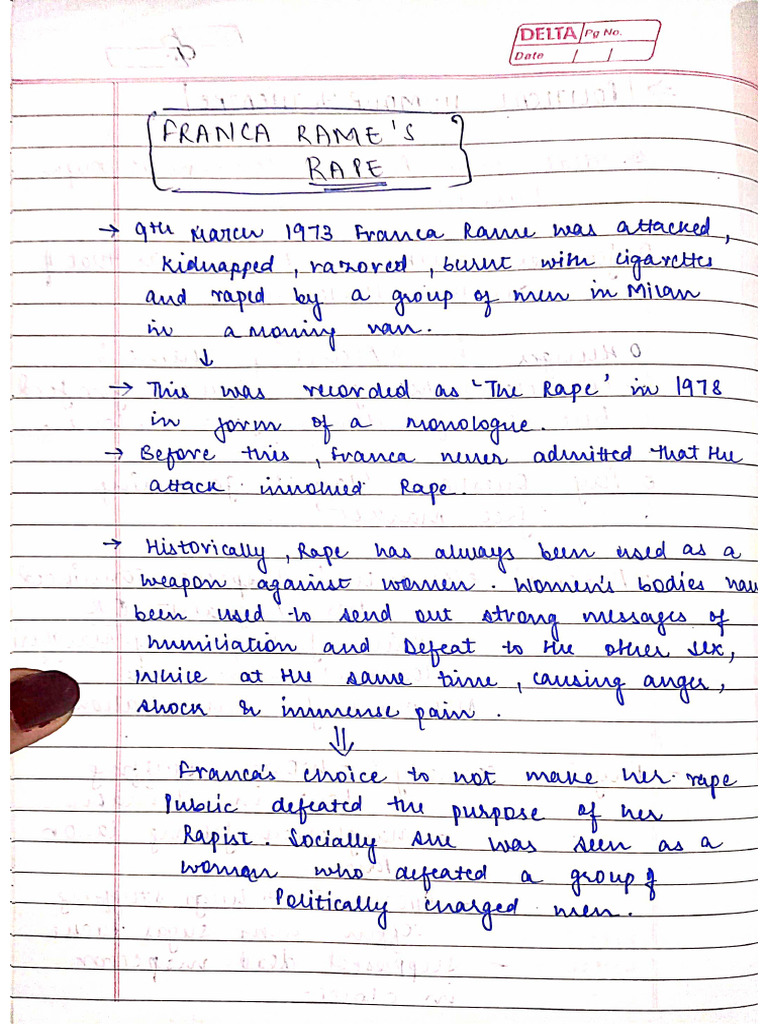 DELTA Pg No.
Date / /
FRANCA RAME'S
RAPE
→ 9th March 1973 Franca Rame was attacked,
kidnapped, razored, burnt with cigarettes
and raped by a group of men in Milan
in a moving van.
↓
→ This was recorded as "The Rape' in 1978
in form of a monologue.
→ Before this, Franca never admitted that the
attack involved Rape.
→ Historically, Rape has always been used as a
weapon against women. Women's bodies have
been used to send out strong messages of
humiliation and Defeat to the other sex,
while at the same time, causing anger,
shock & immense pain.
⇓
Franca's choice to not make her rape
Public defeated the purpose of her
Rapist. Socially she was seen as a
woman who defeated a group of
Politically charged men.